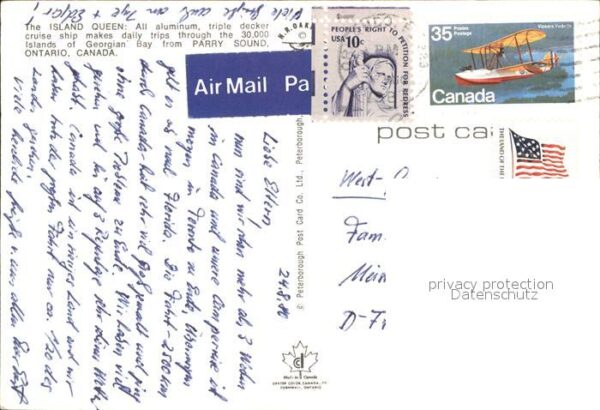 The ISLAND QUEEN: All aluminum, triple decker
cruise ship makes daily trips through the 30,000
Islands of Georgian Bay from PARRY SOUND,
ONTARIO, CANADA.
Air Mail Pa
PEOPLE'S RIGHT TO PETITION FOR REDRESS
USA 10c
35 Postes
Postage
Vickers Vedette
Canada
post ca
THE LAND OF THE
© Peterborough Post Card Co. Ltd., Peterborough
Made in Canada
24.8.80
Liebe Eltern!
nun sind wir schon mehr als 3 Wochen
in Canada und unsere Camperreise ist
morgen in Toronto zu Ende. Übermorgen
geht es ab nach Florida. Die Fahrt - 2500 km
durch Canada - hat sehr viel Spaß gemacht und ging
ohne große Probleme zu Ende. Wir haben viel
gesehen und bis auf 3 Regentage sehr schönes Wetter
gehabt. Canada ist ein riesiges Land und wir
haben trotz der großen Fahrt nur ca. 1/20 des
Landes gesehen.
Viele herzliche Grüße v. uns allen
Viele Grüße auch an
West-
Fam.
D-
privacy protection
Datenschutz